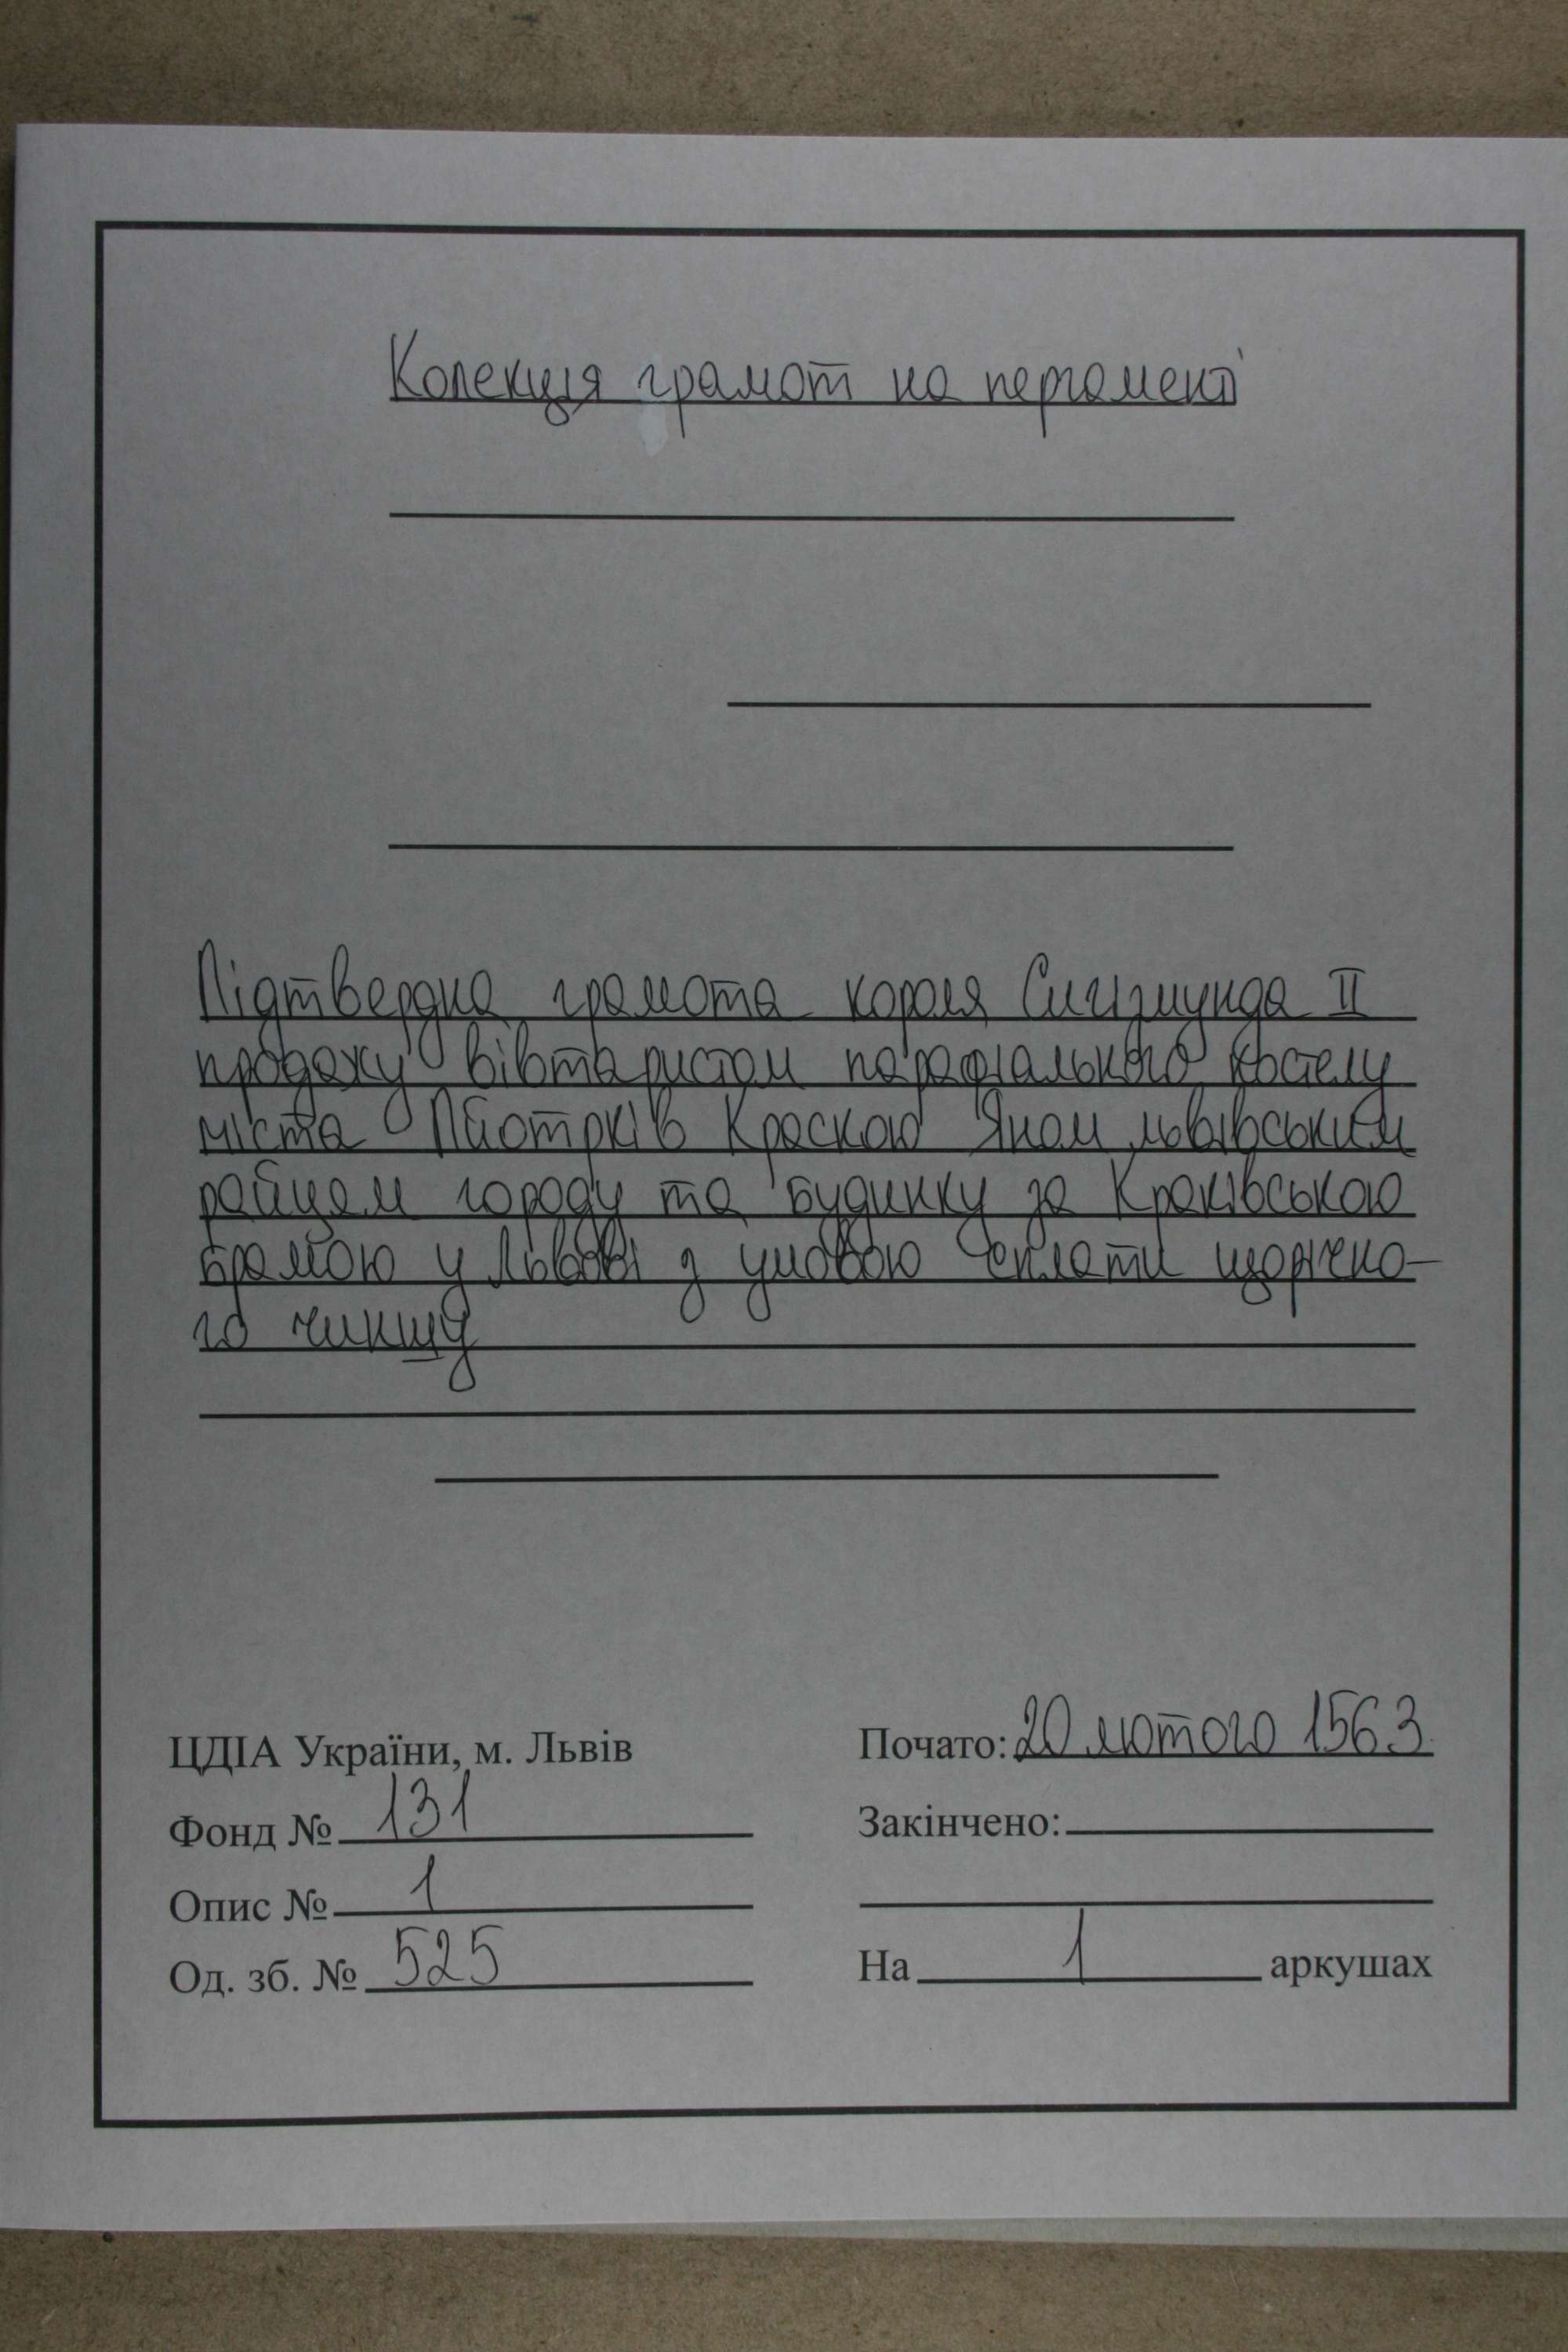 Колекція грамот на пергаменті
Підтвердна грамота короля Сигізмунда II
продажу вівтаристом парафіального костелу
міста Пйотрків Краскою Яном львівським
райцем городу та будинку за Краківською
брамою у Львові з умовою сплати щорічно-
го чиншу
ЦДІА України, м. Львів
Почато: 20 лютого 1563
Фонд № 131
Закінчено:
Опис № 1
Од. зб. № 525
На 1 аркушах